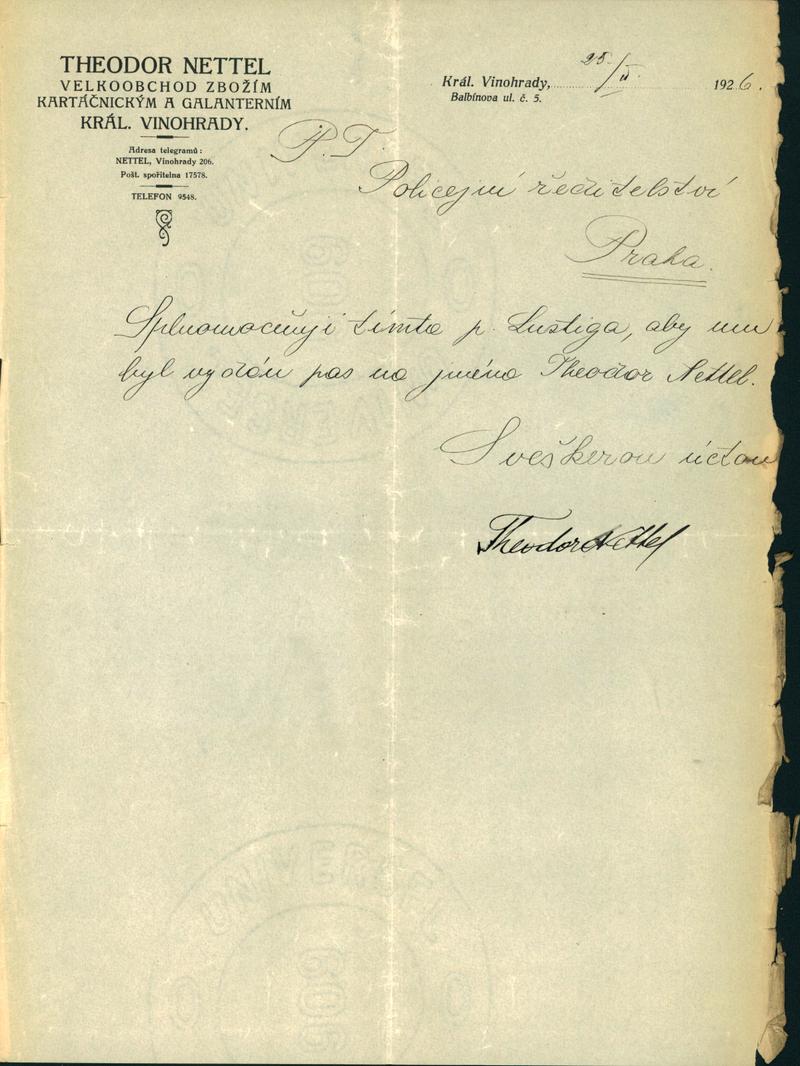 THEODOR NETTEL
VELKOOBCHOD ZBOŽÍM
KARTÁČNICKÝM A GALANTERNÍM
KRÁL. VINOHRADY.
Adresa telegramů:
NETTEL, Vinohrady 206.
Pošt. spořitelna 17578.
TELEFON 9548.
Král. Vinohrady, 25./II. 1926.
Balbínova ul. č. 5.
P. T.
Policejní ředitelství
Praha.
Splnomocňuji tímto p. Lustiga, aby mu
byl vydán pas na jméno Theodor Nettel.
S veškerou úctou
Theodor Nettel
UNIVERSEL
609